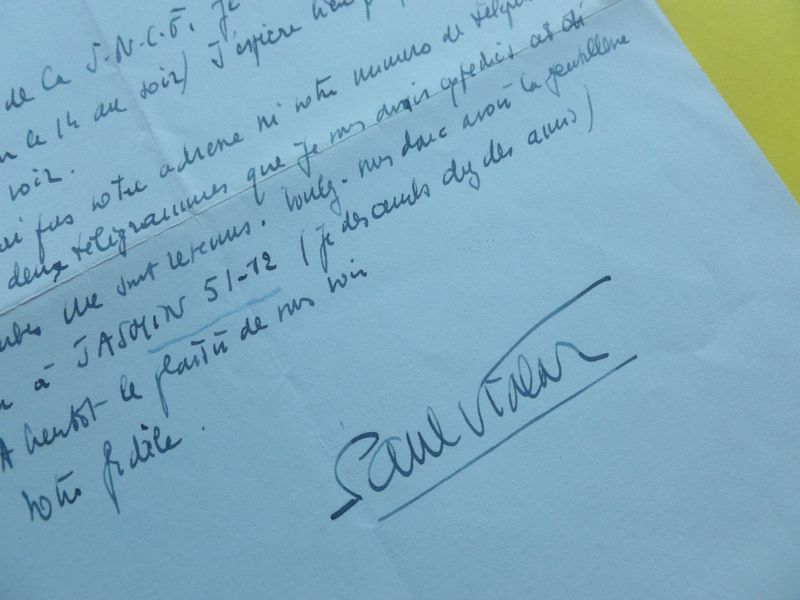 de la S.N.C.F. je
le 14 au soir) J'espère
voir.
pas votre adresse ni votre numéro de
deux télégrammes que je vous avais expédiés
me sont revenus. Voulez-vous donc avoir la gentillesse
à JASMIN 51-12 (je descends chez des amis)
A bientôt le plaisir de vous voir
votre fidèle.
Paul Vialar